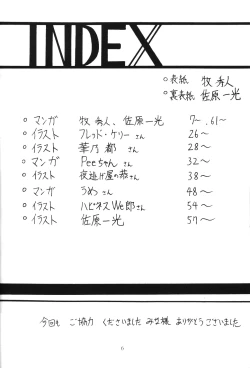 INDEX
○表紙 牧秀人
○裏表紙 佐原一光
○マンガ 牧秀人、佐原一光 7〜,61〜
○イラスト フレッド・ケリーさん 26〜
○イラスト 華乃都さん 28〜
○マンガ Peeちゃん さん 32〜
○イラスト 夜逃げ屋の恭さん 38〜
○マンガ うめさん 48〜
○イラスト ハピネスWe郎さん 54〜
○イラスト 佐原一光 57〜
今回も ご協力 くださいました みな様 ありがとうございました
6